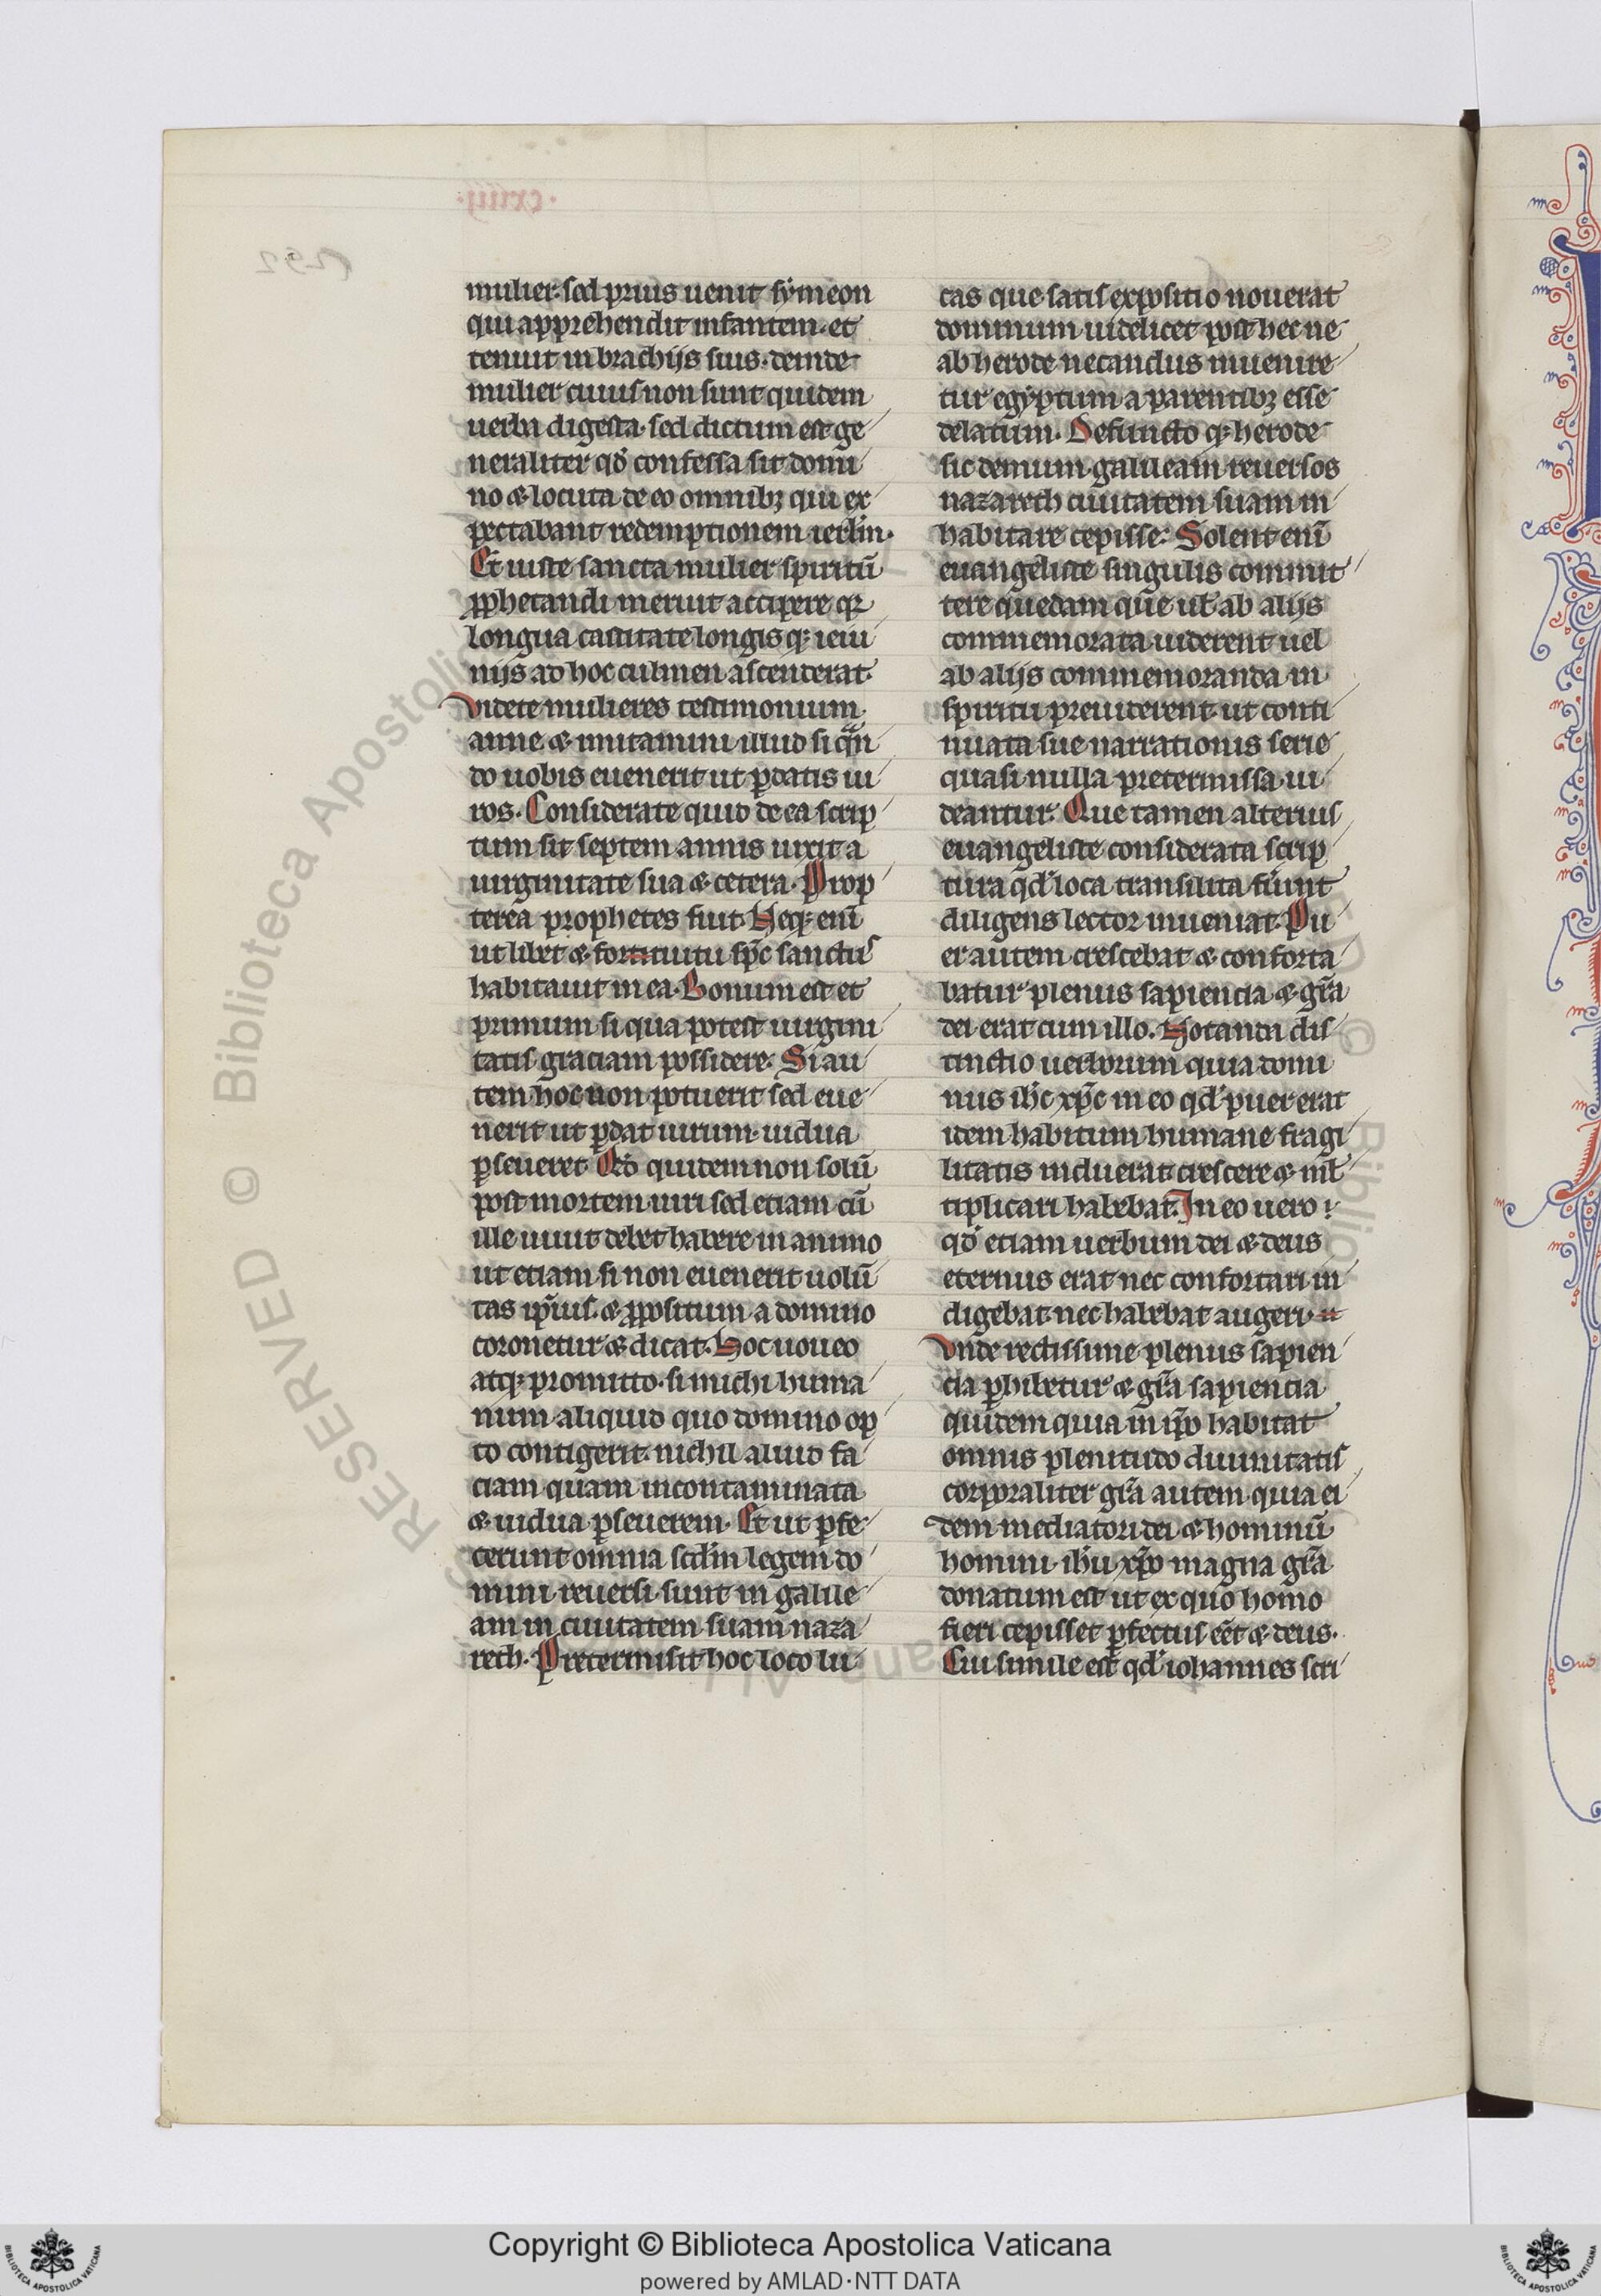 mulier. sed prius uenit symeon
qui apprehendit infantem. et
tenuit in brachijs suis. deinde
mulier cuius non sunt quidem
uerba digesta. sed dictum est ge
neraliter qđ confessa sit domi
no & locuta de eo omnibꝫ qui ex
pectabant redemptionem ierl̄m.
Et iuste sancta mulier spiritū
ꝓphetandi meruit accipere qꝛ
longua castitate longis qꝫ ieiu
nijs ad hoc culmen ascenderat.
Videte mulieres testimonium
anne & imitamini illud si qn̄
do uobis euenerit ut ꝑdatis ui
ros. Considerate quid de ea scrip
tum sit septem annis uixit a
uirginitate sua & cetera. Prop
terea prophetes fuit. Neqꝫ enī
ut libet & fortituitu sp̄c sanctus
habitauit in ea. Bonum est et
primum si qua potest uirgini
tatis graciam possidere. Si au
tem hoc non potuerit sed eue
nerit ut ꝑdat uirum. uidua
ꝑseueret Qđ quidem non solū
post mortem uiri sed etiam cū
ille uiuit debet habere in animo
ut etiam si non euenerit uolū
tas ip̄ius. & ꝓpositum a domino
coronetur & dicat. Hoc uoueo
atqꝫ promitto. si michi huma
num aliquid quod omino op
to contigerit. nichil aliud fa
ciam quam incontaminata
& uidua ꝑseuerem. Et ut ꝑfe
cerunt omnia scd̄m legem do
mini. reuersi sunt in galile
am in ciuitatem suam naza
reth. Pretermisit hoc loco lu
cas que satis expositio nouerat
dominum uidelicet post hec ne
ab herode necandus inuenire
tur egyptum a parentibꝫ esse
delatum. Defuncto qꝫ herode
sic demum galileam reuersos
nazareth ciuitatem suam in
habitare cepisse. Solent enī
euangeliste singulis commit
tere quedam que ul̄ ab alijs
commemorata uiderent uel
ab alijs commemoranda in
spiritu preuiderent. ut conti
nuata sue narrationis serie
quasi nulla pretermissa ui
deantur. Que tamen alterius
euangeliste considerata scrip
tura qđ loca transilita fuīnt
diligens lector inueniat. Pu
er autem crescebat & conforta
batur plenus sapiencia & gr̄a
dei erat cum illo. Notanda dis
tinctio uerborum quia domi
nus ih̄c xp̄c in eo qđ puer erat
idem habitum humane fragi
litatis induerat. crescere & ml̄
tiplicari habebat. In eo uero
qđ etiam uerbum dei & deus
eternus erat nec confortari in
digebat. nec habebat augeri.
Vnde rectissime plenus sapien
cia ꝑhibetur & gr̄a sapiencia
quidem quia in ip̄o habitat
omnis plenitudo diuinitatis
corporaliter gr̄a autem quia ei
dem mediatori dei & hominū
homini ih̄u xp̄o magna gr̄a
donatum est ut ex quo homo
fieri cepisset ꝑfectus eēt & deus.
Cui simile est qđ iohannes scri
Copyright © Biblioteca Apostolica Vaticana
powered by AMLAD·NTT DATA